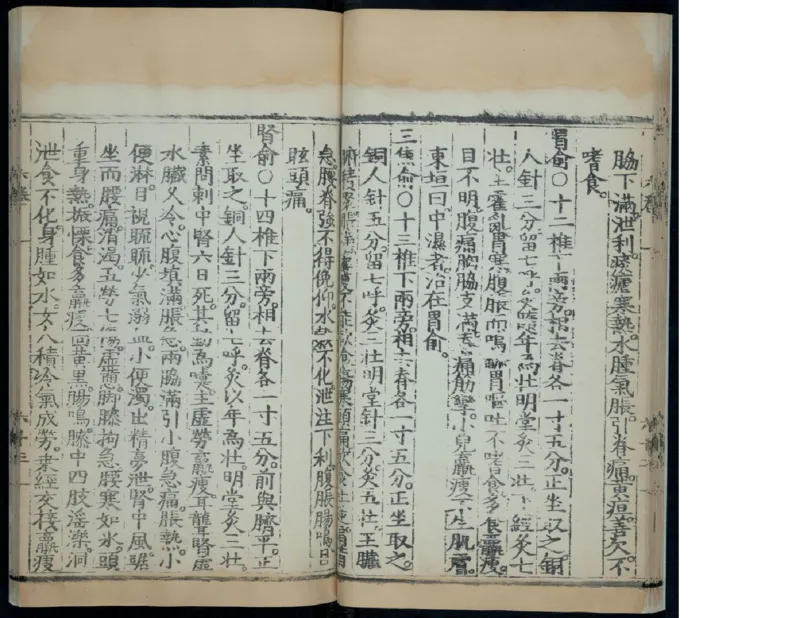 脇下滿。泄利。痎瘧寒熱。水腫氣脹。引脊痛。黃疸。善欠。不
嗜食。
胃俞〇十二椎下兩旁。相去脊各一寸五分。正坐取之。銅
人針三分。留七呼。灸隨年爲壯。明堂灸三壯。下經灸七
壯。主霍亂。胃寒。腹脹而鳴。胃嘔吐。不嗜食。多食羸瘦。
目不明。腹痛。胸脇支滿。脊痛。筋攣。小兒羸瘦。不生肌膚。
東垣曰中濕者。治在胃俞。
三焦俞〇十三椎下兩旁。相去脊各一寸五分。正坐取之。
銅人針五分。留七呼。灸三壯。明堂針三分。灸五壯。主臟
急。腰脊強。不得俛仰。水穀不化。泄注下利。腹脹腸鳴。目
眩頭痛。
腎俞〇十四椎下兩旁。相去脊各一寸五分。前與臍平。正
坐取之。銅人針三分。留七呼。灸以年爲壯。明堂灸三壯。
素問刺中腎六日死。其動爲嚏。主虛勞羸瘦。耳聾腎虛
水臟久冷。心腹塡滿脹急。兩脇滿引小腹急痛。脹熱。小
便淋。目視䀮䀮。少氣。溺血。小便濁。出精夢泄。腎中風。踞
坐而腰痛。消渴。五勞七傷。虛憊。脚膝拘急。腰寒如氷。頭
重身熱。振慄。食多羸瘦。面黃黑。腸鳴。膝中四肢淫濼。洞
泄食不化。身腫如水。女人積冷氣成勞。乘經交接羸瘦